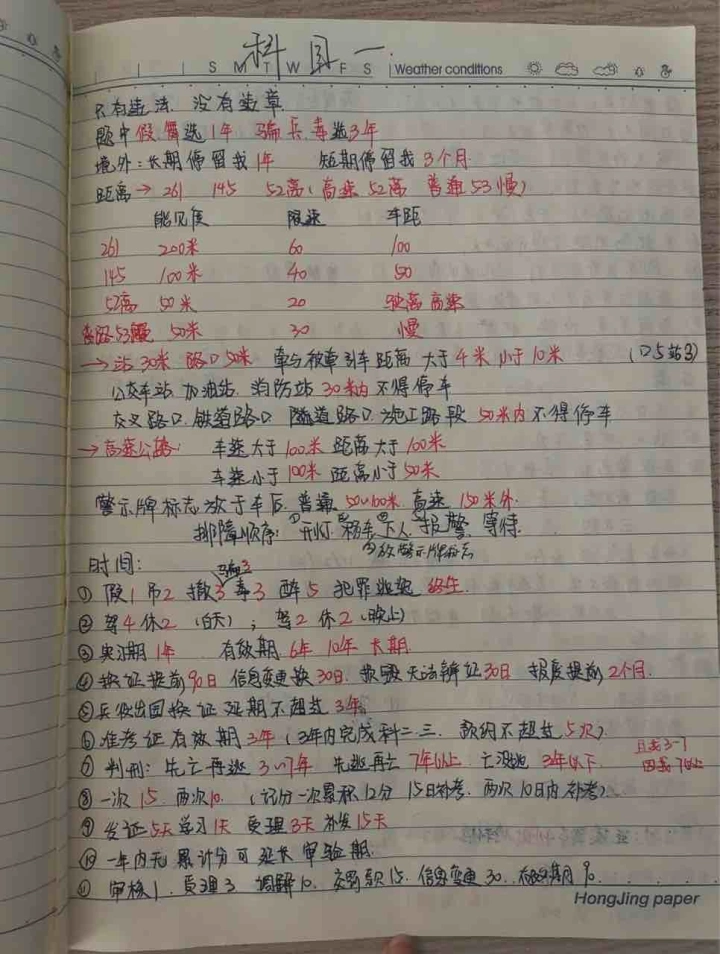 科目一
S M T W T F S Weather conditions
只有违法 没有违章
题中假舞选1年 骗 兵 毒选3年
境外：长期停留我1年 短期停留我3个月
距离→ 261 145 52离（高速52离 普通53慢）
能见度 限速 车距
261 200米 60 100
145 100米 40 50
52离 50米 20 驶离高速
普路53慢 50米 30 慢
→站30米 路口50米 车与被牵引车距离 大于4米 小于10米 （口5站3）
公交车站 加油站 消防站 30米内 不得停车
交叉路口 铁道路口 隧道路口 施工路段 50米内 不得停车
→高速公路： 车速大于100米 距离大于100米
车速小于100米 距离小于50米
警示牌标志放于车后 普通 50~100米 高速 150米外
排障顺序：①开灯 ②移车 ③下人 报警 等待
④放警示牌标志
时间： 骗3
① 假1 吊2 撤3 毒3 醉5 犯罪逃逸 终生
② 驾4休2（白天）；驾2休2（晚上）
③ 实习期1年 有效期 6年 10年 长期
④ 换证提前90日 信息变更换30日 损毁无法辨证30日 报废提前2个月
⑤ 兵役出国换证延期不超过3年
⑥ 准考证有效期3年（3年内完成科二、三 预约不超过5次）
⑦ 判刑：先亡再逃 3~7年 先逃再亡 7年以上 亡没逃 3年以下 且亡3-7
因亡7以上
⑧ 一次15 两次10 （记分一次累积12分 15日补考 两次10日内补考）
⑨ 发证5天 学习1天 受理3天 补发15天
⑩ 一年内无累计分可延长审验期
⑪ 审核1 受理3 调解10 交罚款15 信息变更30 有效期90
HongJing paper